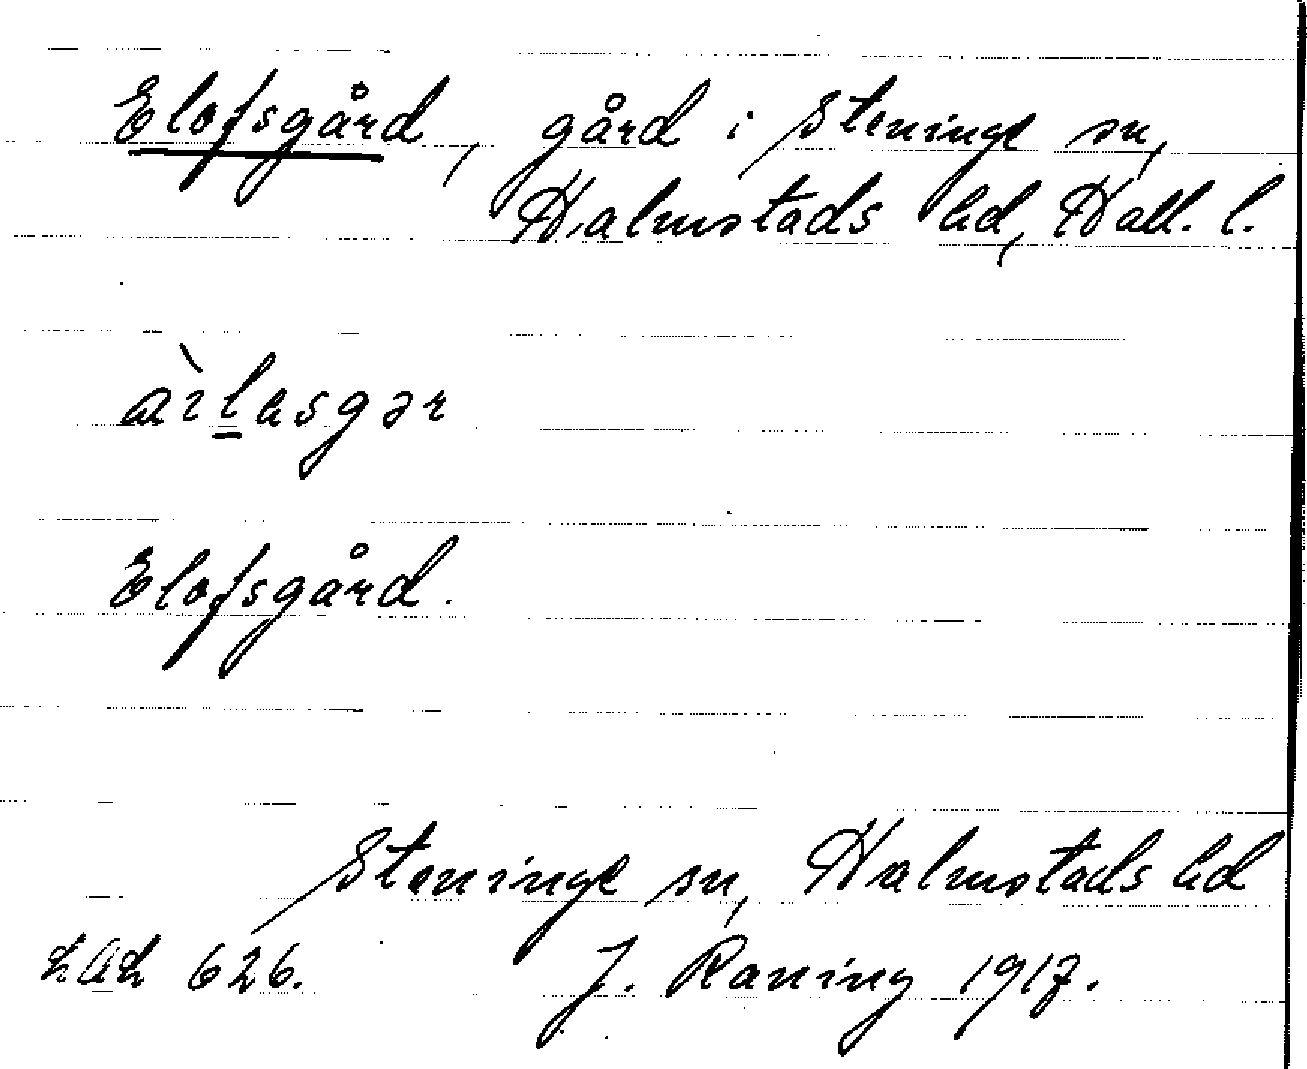 Elofsgård, gård i Steninge sn,
Halmstads hd, Hall. l.
Elofsgård.
Steninge sn, Halmstads hd
626. J. Raning 1917.